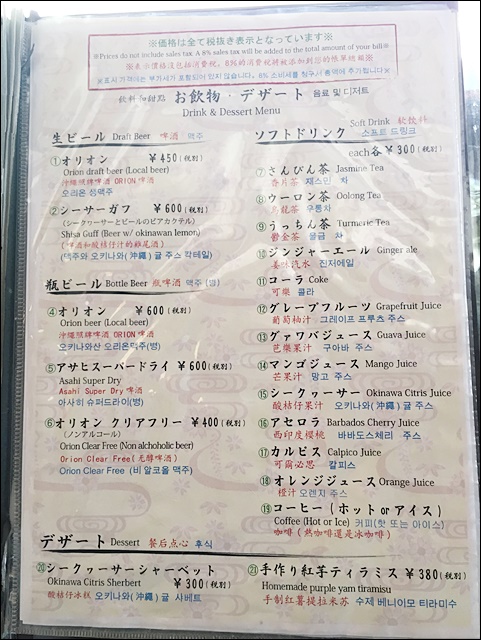 ※価格は全て税抜き表示となっています※
※Prices do not include sales tax. A 8% sales tax will be added to the total amount of your bill※
※表示価格은 부가세가 포함되어 있지 않습니다. 8% 소비세를 청구서 총액에 추가합니다※
飲料和甜點 お飲物・デザート 음료 및 디저트
Drink & Dessert Menu
生ビール Draft Beer 啤酒 맥주
①オリオン ￥450(税別)
Orion draft beer (Local beer)
沖縄頻牌啤酒 ORION啤酒
오리온 생맥주
②シーサーガフ ￥600(税別)
(シークヮーサーとビールのビアカクテル)
Shisa Guff (Beer w/ okinawan lemon)
(啤酒和酸桔仔汁的雞尾酒)
(맥주와 오키나와(沖縄) 귤 주스 칵테일)
瓶ビール Bottle Beer 瓶啤酒 맥주 (병)
④オリオン ￥600(税別)
Orion beer (Local beer)
沖縄頻牌啤酒 ORION啤酒
오키나와산 오리온맥주(병)
⑤アサヒスーパードライ ￥600(税別)
Asahi Super Dry
Asahi Super Dry 啤酒
아사히 슈퍼드라이(병)
⑥オリオン クリアフリー ￥400(税別)
(ノンアルコール)
Orion Clear Free (Non ahchoholic beer)
Orion Clear Free(无醇啤酒)
Orion Clear Free (비 알코올 맥주)
ソフトドリンク Soft Drink 軟飲料
소프트 드링크
each各￥300(税別)
⑦さんぴん茶 Jasmine Tea
香片茶 재스민 차
⑧ウーロン茶 Oolong Tea
烏龍茶 우롱차
⑨うっちん茶 Turmeric Tea
鬱金茶 울금 차
⑩ジンジャーエール Ginger ale
姜味汽水 진저에일
⑪コーラ Coke
可樂 콜라
⑫グレープフルーツ Grapefruit Juice
葡萄柚汁 그레이프 프루츠 주스
⑬グァワバジュース Guava Juice
芭樂果汁 구아바 주스
⑭マンゴジュース Mango Juice
芒果汁 망고 주스
⑮シークヮーサー Okinawa Citris Juice
酸桔仔果汁 오키나와(沖縄) 귤 주스
⑯アセロラ Barbados Cherry Juice
西印度櫻桃 바바도스체리 주스
⑰カルピス Calpico Juice
可爾必思 칼피스
⑱オレンジジュース Orange Juice
橙汁 오렌지 주스
⑲コーヒー(ホット or アイス)
Coffee (Hot or Ice) 커피(핫 또는 아이스)
咖啡(熱咖啡還是冰咖啡)
デザート Dessert 餐后点心 후식
⑳シークヮーサーシャーベット
Okinawa Citris Sherbert ￥300(税別)
酸桔仔冰糕 오키나와(沖縄) 귤 샤베트
㉑手作り紅芋ティラミス ￥380(税別)
Homemade purple yam tiramisu
手制红薯提拉米苏 수제 베니이모 티라미수